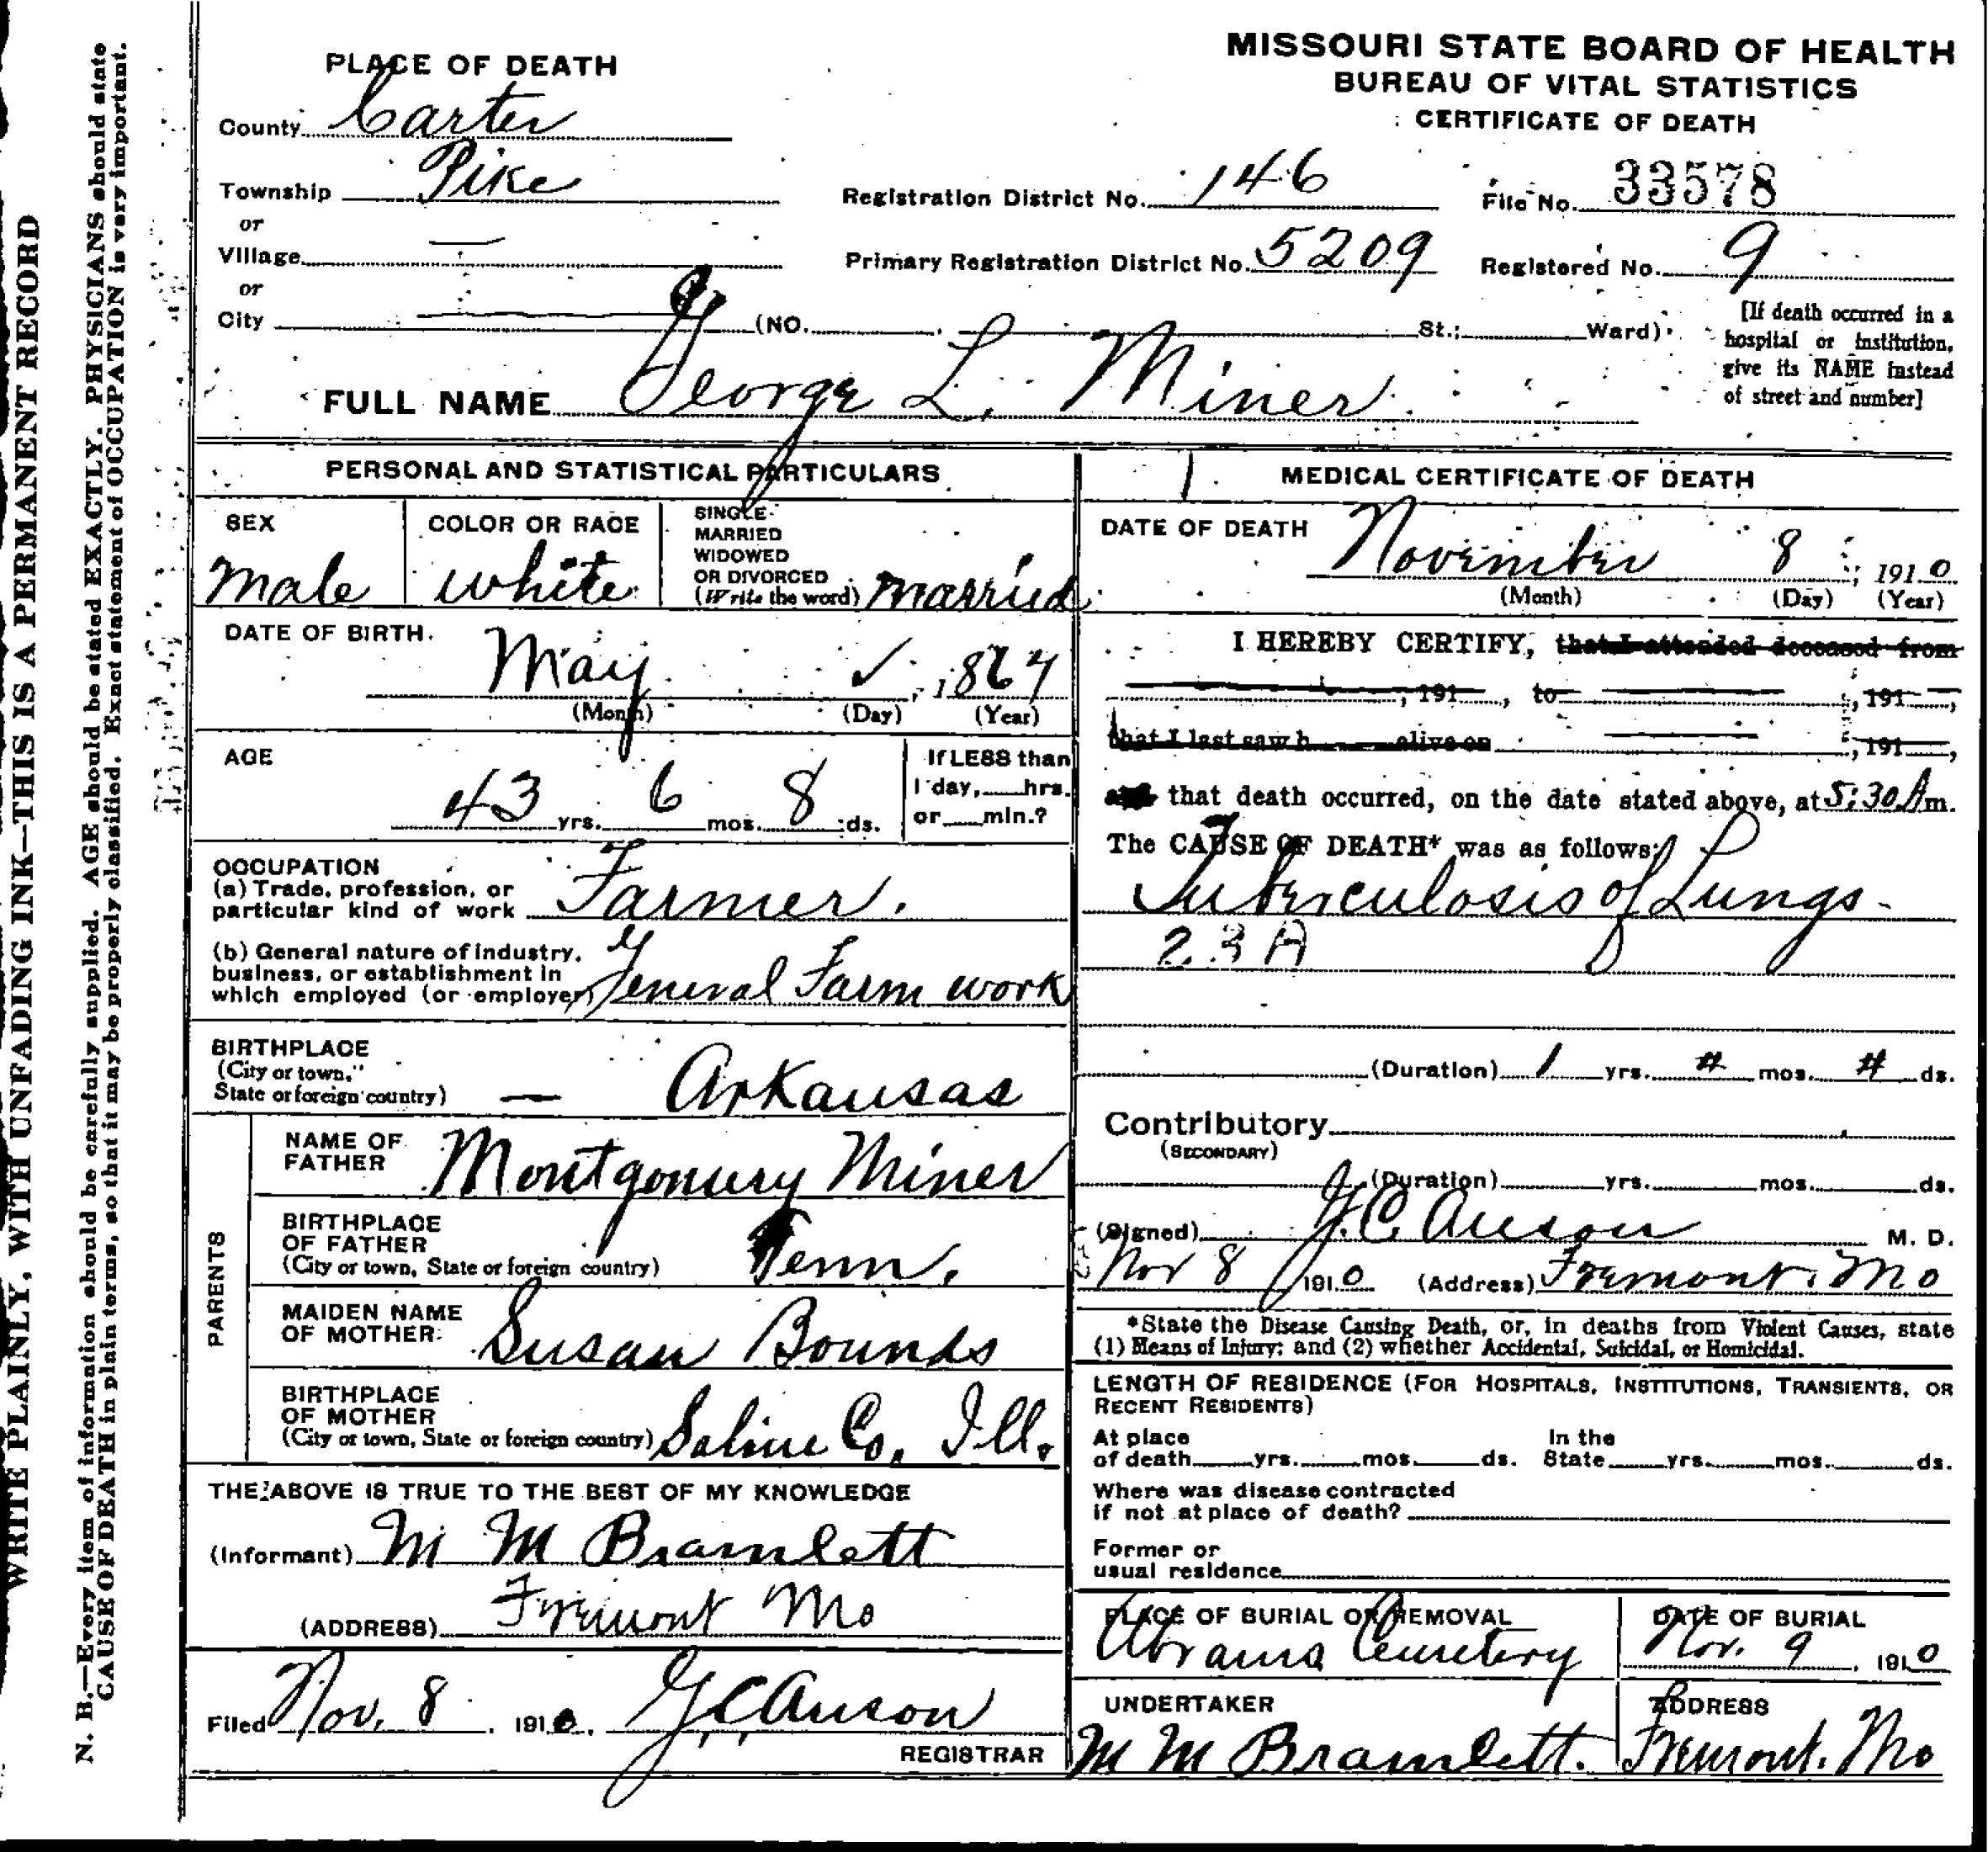 WRITE PLAINLY, WITH UNFADING INK—THIS IS A PERMANENT RECORD
N. B.—Every item of information should be carefully supplied. AGE should be stated EXACTLY. PHYSICIANS should state
CAUSE OF DEATH in plain terms, so that it may be properly classified. Exact statement of OCCUPATION is very important.
MISSOURI STATE BOARD OF HEALTH
BUREAU OF VITAL STATISTICS
CERTIFICATE OF DEATH
PLACE OF DEATH
County Carter
Township Pike
or
Village
or
City (NO. St.; Ward)
Registration District No. 146 File No. 33578
Primary Registration District No. 5209 Registered No. 9
[If death occurred in a
hospital or institution,
give its NAME instead
of street and number]
FULL NAME George L. Miner
PERSONAL AND STATISTICAL PARTICULARS
SEX
male
COLOR OR RACE
white
SINGLE
MARRIED
WIDOWED
OR DIVORCED
(Write the word) married
DATE OF BIRTH
May ✓, 1867
(Month) (Day) (Year)
AGE
43 yrs. 6 mos. 8 ds.
If LESS than
1 day, hrs.
or min.?
OCCUPATION
(a) Trade, profession, or
particular kind of work Farmer.
(b) General nature of industry,
business, or establishment in
which employed (or employer) General Farm work
BIRTHPLACE
(City or town,
State or foreign country) — Arkansas
PARENTS
NAME OF
FATHER Montgomery Miner
BIRTHPLACE
OF FATHER
(City or town, State or foreign country) Tenn.
MAIDEN NAME
OF MOTHER Susan Bounds
BIRTHPLACE
OF MOTHER
(City or town, State or foreign country) Saline Co. Ill.
THE ABOVE IS TRUE TO THE BEST OF MY KNOWLEDGE
(Informant) M M Bramlett
(ADDRESS) Fremont Mo
Filed Nov. 8 1910. J C Anson
REGISTRAR
MEDICAL CERTIFICATE OF DEATH
DATE OF DEATH November 8, 1910
(Month) (Day) (Year)
I HEREBY CERTIFY, that I attended deceased from
, 191 , to , 191 ,
that I last saw h alive on , 191 ,
and that death occurred, on the date stated above, at 5:30 A m.
The CAUSE OF DEATH* was as follows:
Tuberculosis of Lungs -
23 A
(Duration) 1 yrs. # mos. # ds.
Contributory
(SECONDARY)
(Duration) yrs. mos. ds.
(Signed) J. C. Anson M. D.
Nov 8 1910 (Address) Fremont. Mo
*State the Disease Causing Death, or, in deaths from Violent Causes, state
(1) Means of Injury; and (2) whether Accidental, Suicidal, or Homicidal.
LENGTH OF RESIDENCE (FOR HOSPITALS, INSTITUTIONS, TRANSIENTS, OR
RECENT RESIDENTS)
At place
of death yrs. mos. ds.
In the
State yrs. mos. ds.
Where was disease contracted
if not at place of death?
Former or
usual residence
PLACE OF BURIAL OR REMOVAL
Abrams Cemetery
DATE OF BURIAL
Nov. 9, 1910
UNDERTAKER
M M Bramlett.
ADDRESS
Fremont. Mo